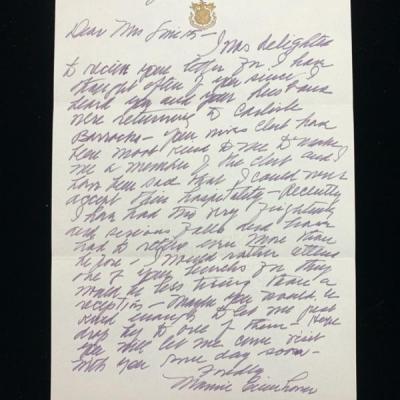 Dear Mrs Smith - I was delighted
to receive your letter for I have
thought often of you since I
heard you and your husband
were returning to Carlisle
Barracks - your wives club has
been most kind to me to make
me a member of the club and I
have been sad that I could not
accept their hospitality - Recently
I have had two very frightening
and serious falls and have
had to refuse even more than
before - I would rather attend
one of your for they
would be less tiring than a
reception - maybe you would be
kind enough to let me just
drop by to one of them - I hope
you will let me come visit
with you some day soon -
Fondly
Mamie Eisenhower